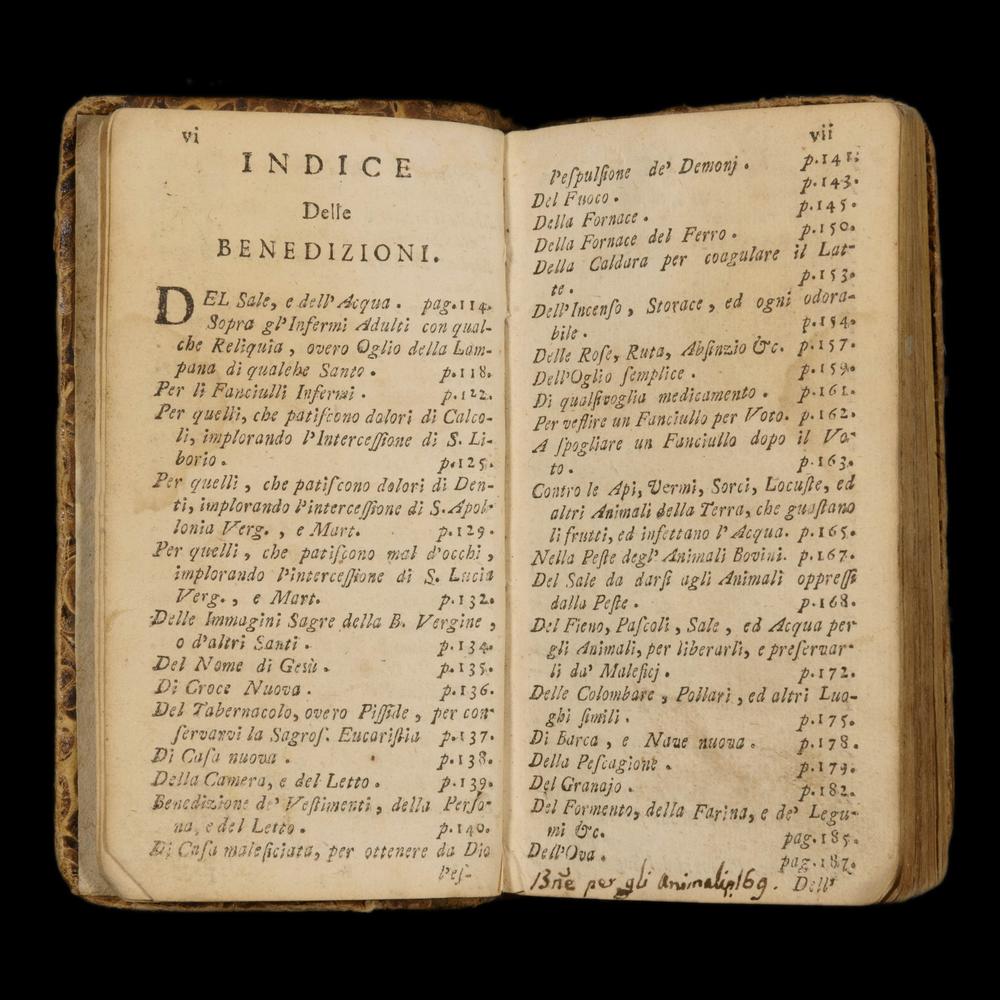 vi
INDICE
Delle
BENEDIZIONI.
DEL Sale, e dell'Acqua. pag.114.
Sopra gl'Infermi Adulti con qual-
che Reliquia, overo Oglio della Lam-
pana di qualche Santo. p.118.
Per li Fanciulli Infermi. p.122.
Per quelli, che patiſcono dolori di Calco-
li, implorando l'Interceſſione di S. Li-
borio. p.125.
Per quelli, che patiſcono dolori di Den-
ti, implorando l'interceſſione di S. Apol-
lonia Verg., e Mart. p.129.
Per quelli, che patiſcono mal d'occhi,
implorando l'interceſſione di S. Lucia
Verg., e Mart. p.132.
Delle Immagini Sagre della B. Vergine,
o d'altri Santi. p.134.
Del Nome di Gesù. p.135.
Di Croce Nuova. p.136.
Del Tabernacolo, overo Piſſide, per con-
ſervarvi la Sagroſ. Eucariſtia p.137.
Di Caſa nuova. p.138.
Della Camera, e del Letto. p.139.
Benedizione de' Veſtimenti, della Perſo-
na, e del Letto. p.140.
Di Caſa maleficiata, per ottenere da Dio
l'eſ-
vii
l'eſpulſione de' Demonj. p.141.
Del Fuoco. p.143.
Della Fornace. p.145.
Della Fornace del Ferro. p.150.
Della Caldara per coagulare il Lat-
te. p.153.
Dell'Incenſo, Storace, ed ogni odora-
bile. p.154.
Delle Roſe, Ruta, Abſinzio &c. p.157.
Dell'Oglio ſemplice. p.159.
Di qualſivoglia medicamento. p.161.
Per veſtire un Fanciullo per Voto. p.162.
A ſpogliare un Fanciullo dopo il Vo-
to. p.163.
Contro le Api, Vermi, Sorci, Locuſte, ed
altri Animali della Terra, che guaſtano
li frutti, ed infettano l'Acqua. p.165.
Nella Peſte degl' Animali Bovini. p.167.
Del Sale da darſi agli Animali oppreſſi
dalla Peſte. p.168.
Del Fieno, Paſcoli, Sale, ed Acqua per
gli Animali, per liberarli, e preſervar-
li da' Maleficj. p.172.
Delle Colombare, Pollari, ed altri Luo-
ghi ſimili. p.175.
Di Barca, e Nave nuova. p.178.
Della Peſcagione. p.179.
Del Granajo. p.182.
Del Formento, della Farina, e de' Legu-
mi &c. pag.185.
Dell'Ova. pag.187.
Bñe per gli Animali p.169.
Dell'